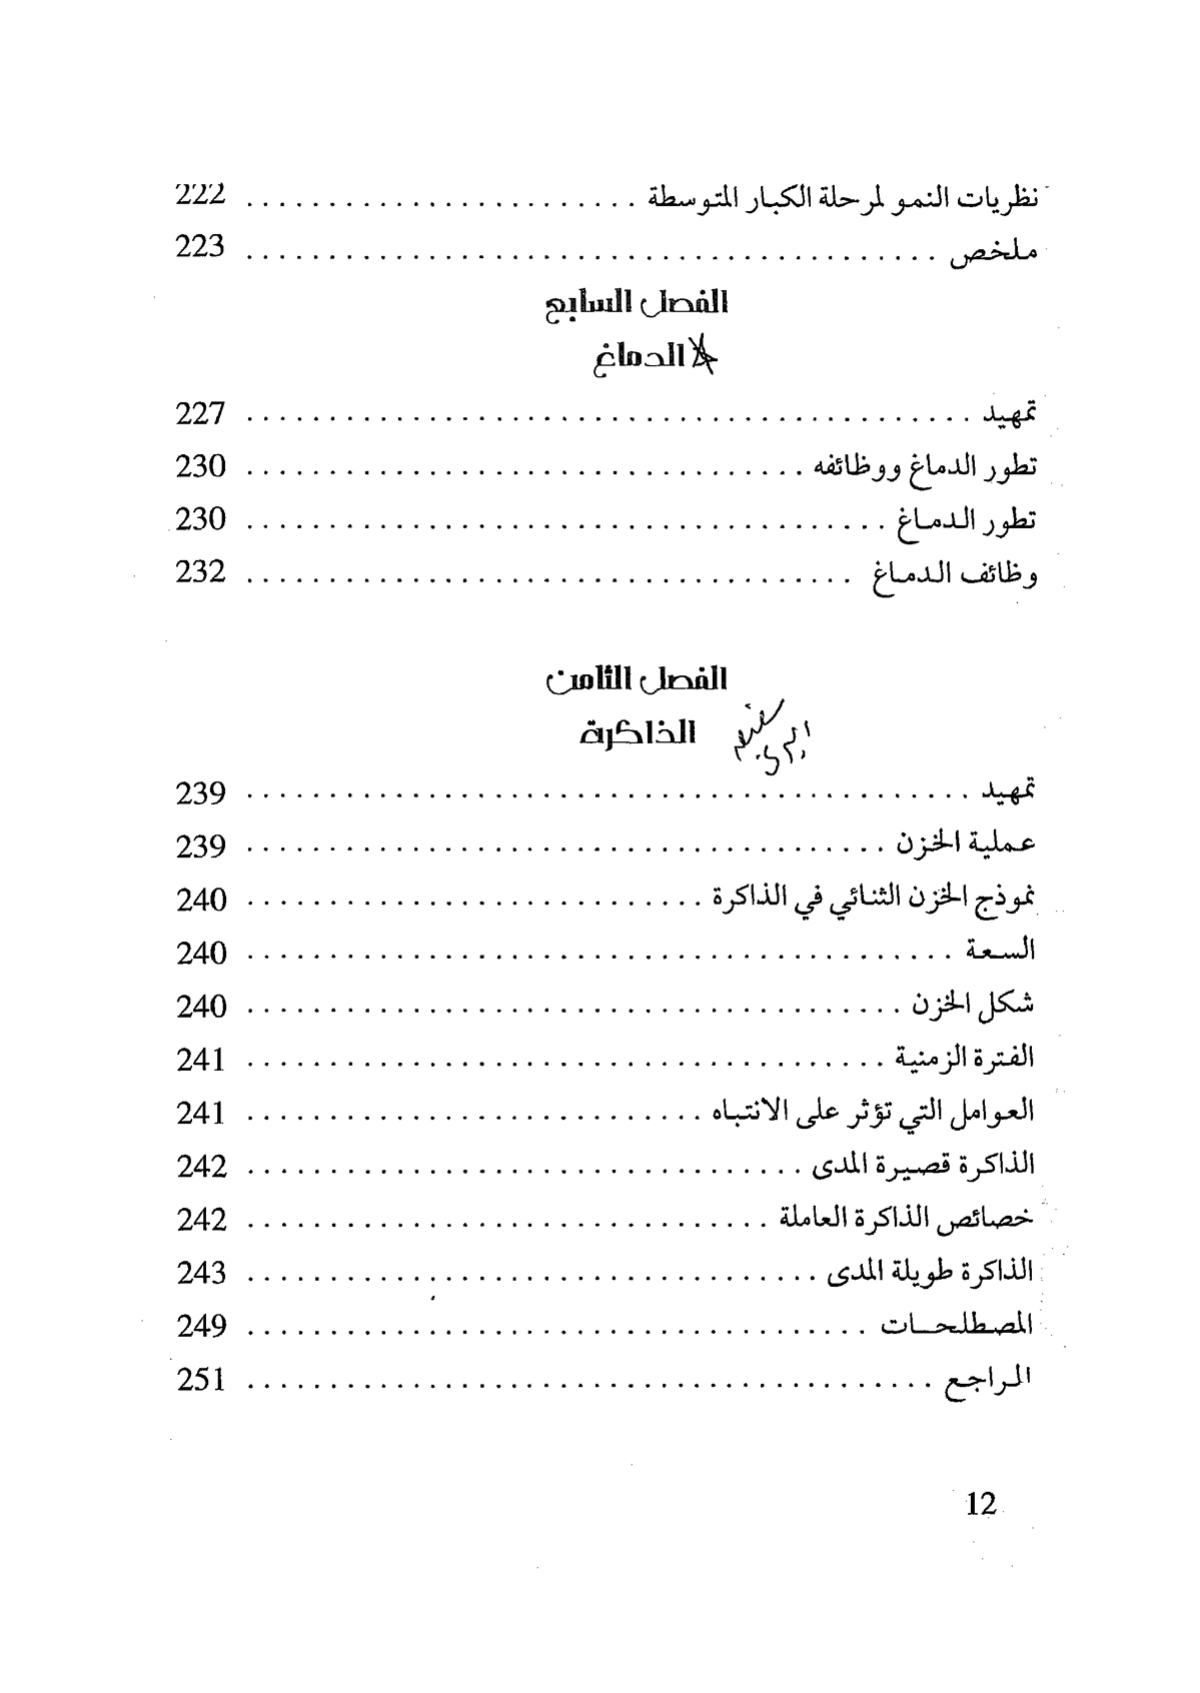 نظريات النمو لمرحلة الكبار المتوسطة ........................ 222
ملخص .......................................... 223
الفصل السابع
الدماغ
تمهيد ............................................ 227
تطور الدماغ ووظائفه .................................. 230
تطور الدماغ ....................................... 230
وظائف الدماغ ..................................... 232
الفصل الثامن
الذاكرة
تمهيد ............................................ 239
عملية الخزن ....................................... 239
نموذج الخزن الثنائي في الذاكرة ............................ 240
السعة ........................................... 240
شكل الخزن ........................................ 240
الفترة الزمنية ....................................... 241
العوامل التي تؤثر على الانتباه ............................ 241
الذاكرة قصيرة المدى .................................. 242
خصائص الذاكرة العاملة ................................ 242
الذاكرة طويلة المدى ................................... 243
المصطلحات ...................................... 249
المراجع .......................................... 251
12